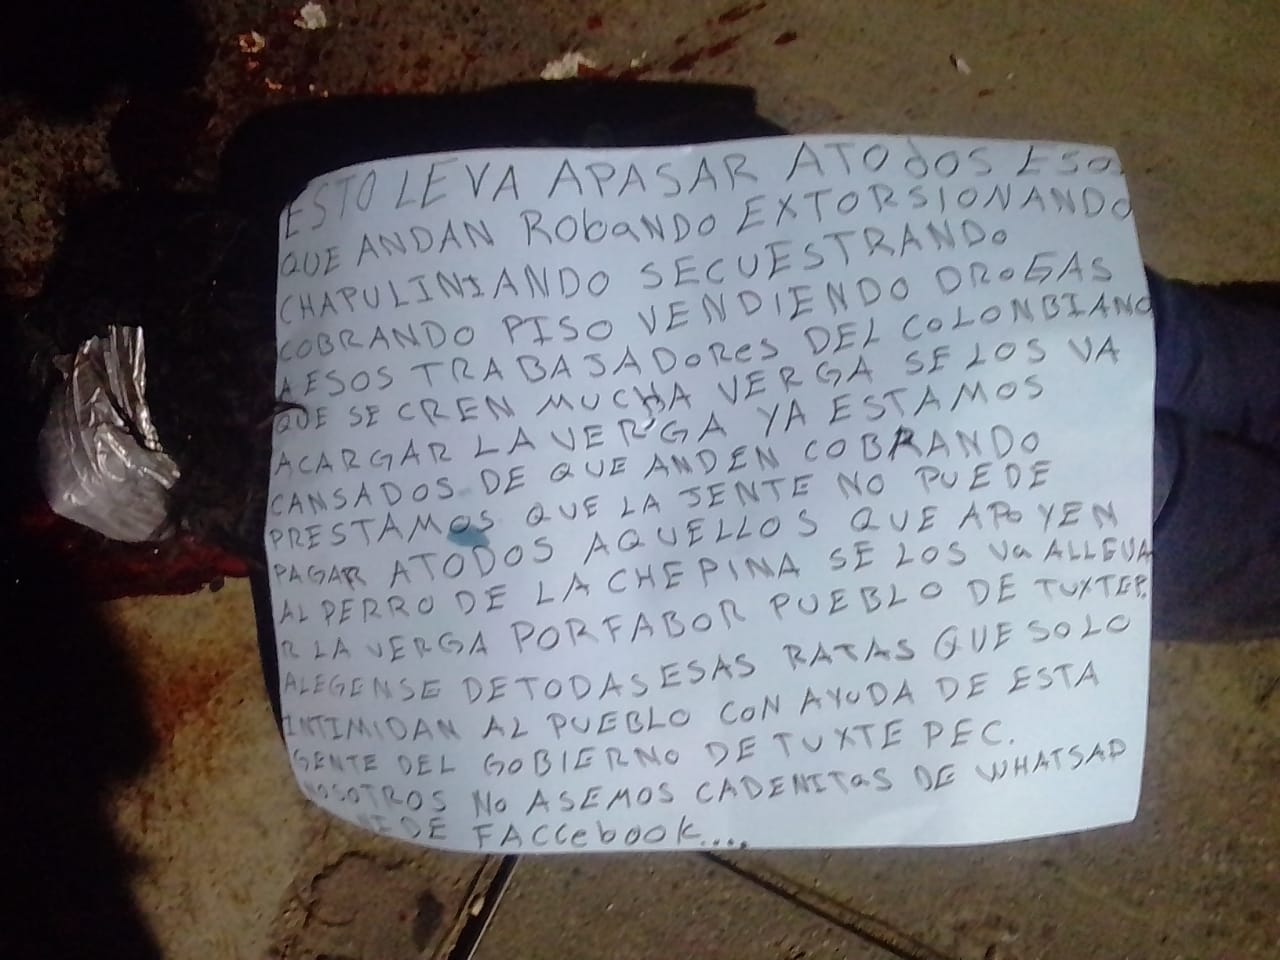 ESTO LE VA APASAR ATODOS ESO
QUE ANDAN RObANDO EXTORSIONANDO
CHAPULINIANDO SECUESTRANDO
COBRANDO PISO VENDIENDO DROGAS
A ESOS TRABAJADOReS DEL COLONBIANO
QUE SE CREN MUCHA VERGA SE LOS VA
ACARGAR LA VERGA YA ESTAMOS
CANSADOS DE QUE ANDEN COBRANDO
PRESTAMOS QUE LA JENTE NO PUEDE
PAGAR ATODOS AQUELLOS QUE APOYEN
AL PERRO DE LA CHEPINA SE LOS Va ALLEVA
R LA VERGA PORFABOR PUEBLO DE TUXTEP.
ALEGENSE DETODAS ESAS RATAS QUE SOLO
INTIMIDAN AL PUEBLO CON AYUDA DE ESTA
GENTE DEL GOBIERNO DE TUXTEPEC.
NOSOTROS No ASEMOS CADENITaS DE WHATSAD
NI DE FACCebook....